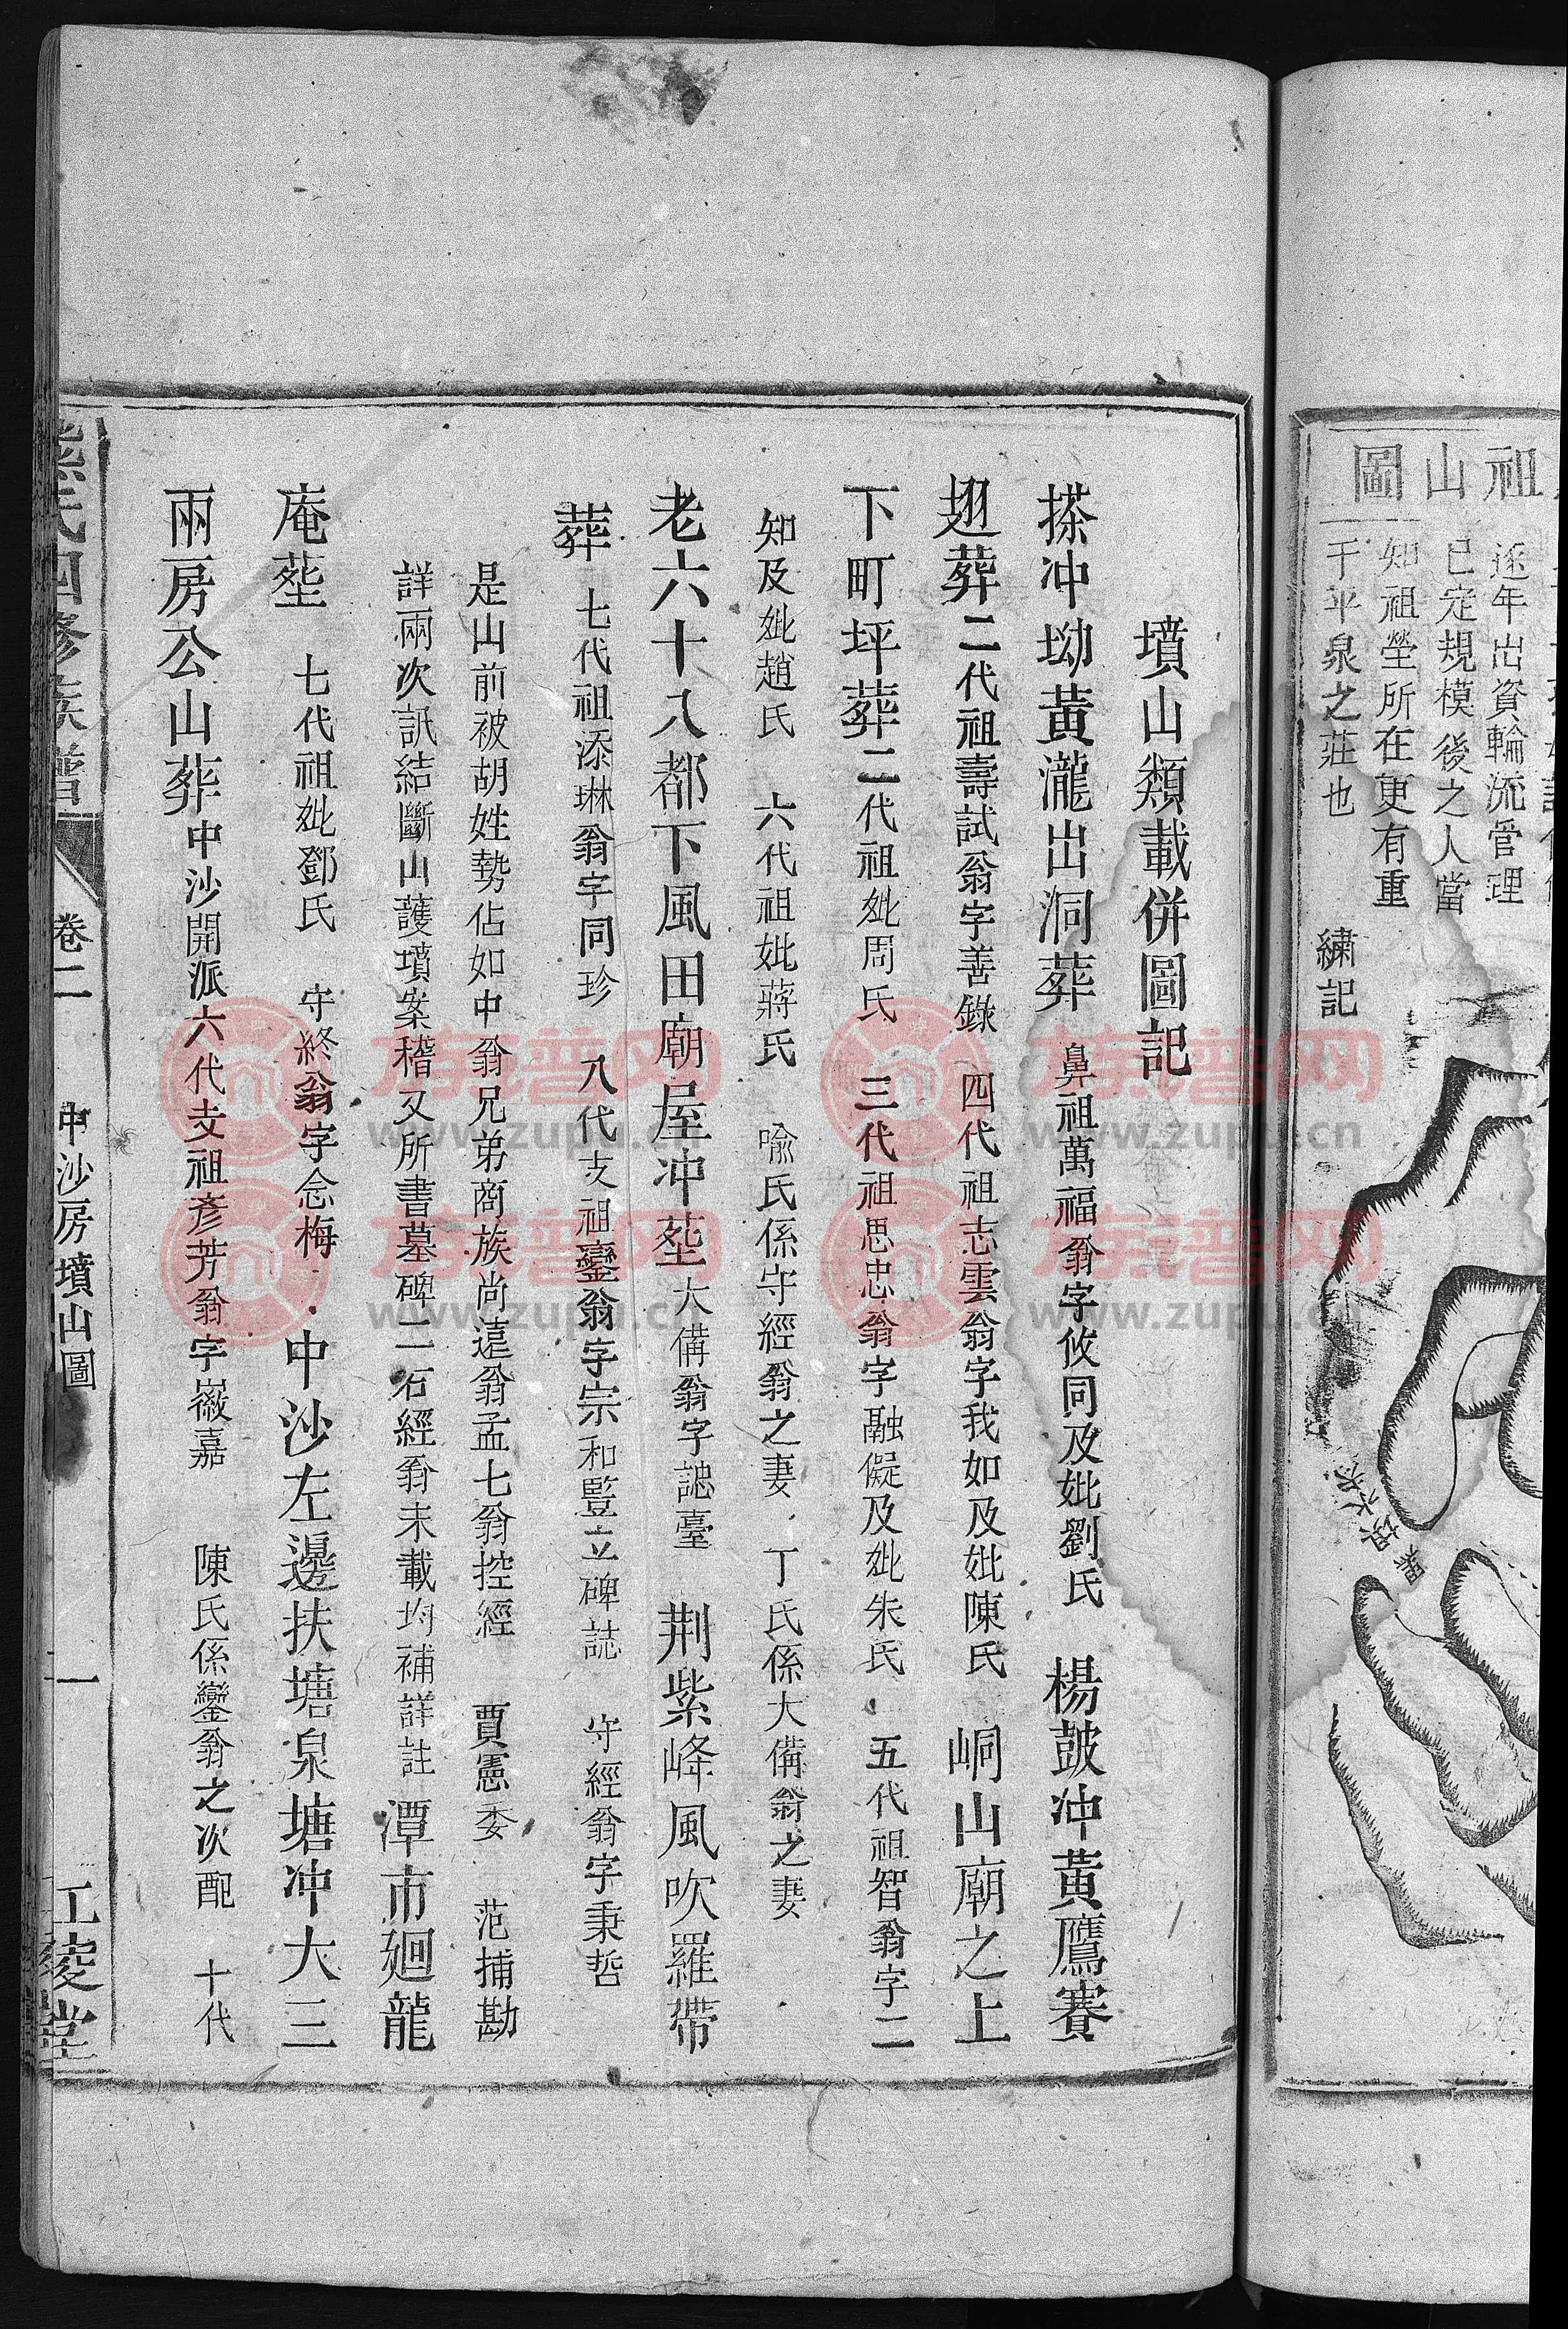 祖山圖
逐年出資輪流管理
已定規模後之人當
知祖塋所在更有重
于平泉之莊也
繍記
墳山類載併圖記
搽冲坳黃瀧出洞葬 鼻祖萬福翁字攸同及妣劉氏 楊皷冲黃鷹賽
翅葬二代祖壽試翁字善錄 四代祖志雲翁字我如及妣陳氏 峒山廟之上
下町坪葬二代祖妣周氏 三代祖思忠翁字融儗及妣朱氏 五代祖智翁字二
知及妣趙氏 六代祖妣蔣氏 喻氏係守經翁之妻 丁氏係大備翁之妻
老六十八都下風田廟屋冲塟大備翁字誌臺 荆紫峰風吹羅帶
葬 七代祖添琳翁字同珍 八代支祖鑾翁字宗和豎立碑誌 守經翁字秉哲
是山前被胡姓勢佔如中翁兄弟商族尚遠翁孟七翁控經 賈憲委 范捕勘
詳兩次訊結斷山護墳案稽又所書墓碑二石經翁未載均補詳註 潭市廻龍
庵塟 七代祖妣鄧氏 守終翁字念梅 中沙左邊扶塘泉塘冲大三
兩房公山葬中沙開派六代支祖彥芳翁字徽嘉 陳氏係鑾翁之次配 十代
氏四修族譜
卷二
中沙房墳山圖
一
江陵堂
族譜网
www.zupu.cn
族譜网
www.zupu.cn
族譜网
www.zupu.cn
族譜网
www.zupu.cn